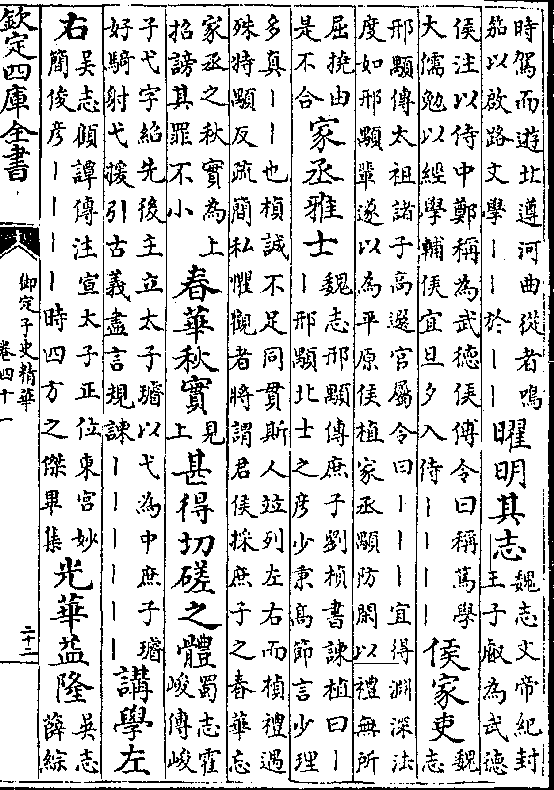 時駕而遊北遵河曲從者鳴
笳以啟路文學丨丨於丨丨
曜明其志
魏志文帝紀封
王子叡為武德
侯注以侍中鄭稱為武德侯傅令曰稱篤學
大儒勉以經學輔侯宜旦夕入侍丨丨丨丨
侯家吏
魏
志
邢顒傳太祖諸子高選官屬令曰丨丨丨宜得淵深法
度如邢顒輩遂以為平原侯植家丞顒防閑以禮無所
屈撓由
是不合
家丞雅士
魏志邢顒傳庶子劉楨書諫植曰丨
丨邢顒北士之彥少秉高節言少理
多真丨丨也楨誠不足同貫斯人竝列左右而楨禮遇
殊特顒反疏簡私懼觀者將謂君侯採庶子之春華忘
家丞之秋實為上
招謗其罪不小
春華秋實
見
上
甚得切磋之體
蜀志霍
峻傳峻
子弋字紹先後主立太子璿以弋為中庶子璿
好騎射弋援引古義盡言規諫丨丨丨丨丨丨
講學左
右
吳志顧譚傳注宣太子正位東宮妙
簡俊彥丨丨丨丨時四方之傑畢集
光華益隆
吳志
薛綜
欽定四庫全書
御定子史精華
卷四十一
二十二